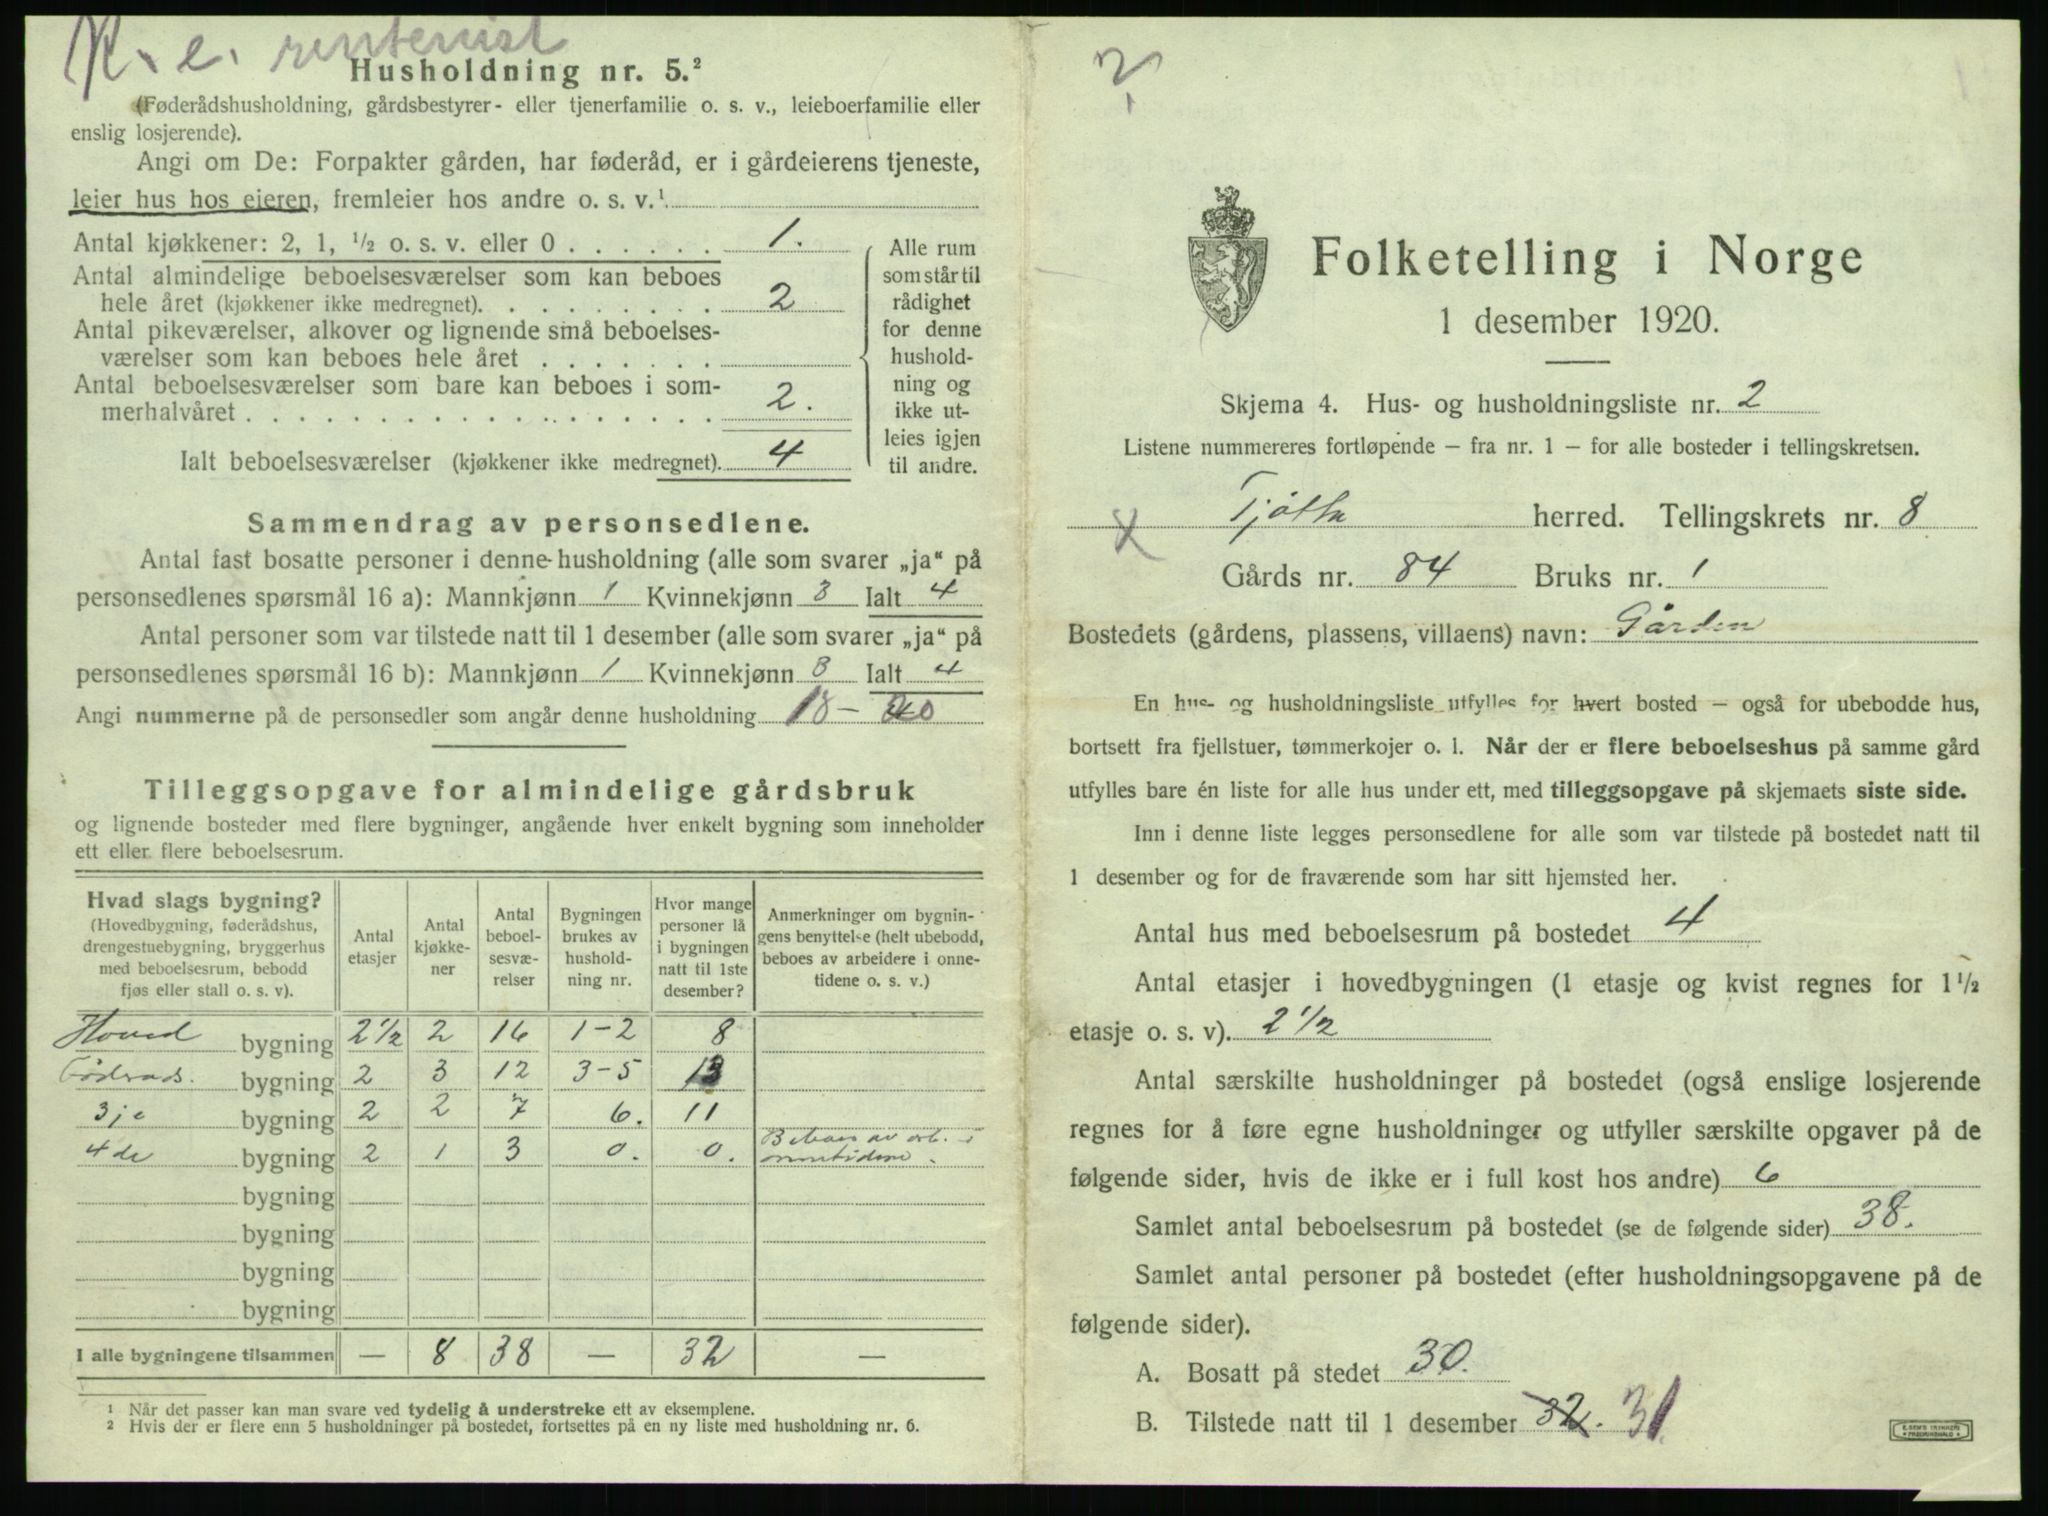 K. e. rentenist
Husholdning nr. 5.²
(Føderådshusholdning, gårdsbestyrer- eller tjenerfamilie o. s. v., leieboerfamilie eller
enslig losjerende).
Angi om De: Forpakter gården, har føderåd, er i gårdeierens tjeneste,
leier hus hos eieren, fremleier hos andre o. s. v.¹
Antal kjøkkener: 2, 1, ½ o. s. v. eller 0 . . . . . . 1.
Antal almindelige beboelsesværelser som kan beboes
hele året (kjøkkener ikke medregnet). . . . . . . . . 2
Antal pikeværelser, alkover og lignende små beboelses-
værelser som kan beboes hele året . . . . . . .
Antal beboelsesværelser som bare kan beboes i som-
merhalvåret . . . . . . . . . . . . . . . . . . 2.
Ialt beboelsesværelser (kjøkkener ikke medregnet). 4
Alle rum
som står til
rådighet
for denne
hushold-
ning og
ikke ut-
leies igjen
til andre.
Sammendrag av personsedlene.
Antal fast bosatte personer i denne husholdning (alle som svarer „ja“ på
personsedlenes spørsmål 16 a): Mannkjønn 1 Kvinnekjønn 3 Ialt 4
Antal personer som var tilstede natt til 1 desember (alle som svarer „ja“ på
personsedlenes spørsmål 16 b): Mannkjønn 1 Kvinnekjønn 3 Ialt 4
Angi nummerne på de personsedler som angår denne husholdning 18 –
Tilleggsopgave for almindelige gårdsbruk
og lignende bosteder med flere bygninger, angående hver enkelt bygning som inneholder
ett eller flere beboelsesrum.
Hvad slags bygning?
(Hovedbygning, føderådshus,
drengestuebygning, bryggerhus
med beboelsesrum, bebodd
fjøs eller stall o. s. v).
Antal
etasjer
Antal
kjøkke-
ner
Antal
beboel-
sesvæ-
relser
Bygningen
brukes av
hushold-
ning nr.
Hvor mange
personer lå
i bygningen
natt til 1ste
desember?
Anmerkninger om bygnin-
gens benyttelse (helt ubebodd,
beboes av arbeidere i onne-
tidene o. s. v.)
Hoved bygning 2½ 2 16 1-2 8
Föderads. bygning 2 3 12 3-5 13
3je bygning 2 2 7 6. 11
4de bygning 2 1 3 0. 0. Beboes av arb. i
onnetidene.
bygning
bygning
bygning
bygning
I alle bygningene tilsammen — 8 38 — 32 —
¹ Når det passer kan man svare ved tydelig å understreke ett av eksemplene.
² Hvis der er flere enn 5 husholdninger på bostedet, fortsettes på en ny liste med husholdning nr. 6.
Folketelling i Norge
1 desember 1920.
Skjema 4. Hus- og husholdningsliste nr. 2
Listene nummereres fortløpende – fra nr. 1 – for alle bosteder i tellingskretsen.
Tjøtta herred. Tellingskrets nr. 8
Gårds nr. 84 Bruks nr. 1
Bostedets (gårdens, plassens, villaens) navn: Gården
En hus- og husholdningsliste utfylles for hvert bosted – også for ubebodde hus,
bortsett fra fjellstuer, tømmerkojer o. l. Når der er flere beboelseshus på samme gård
utfylles bare én liste for alle hus under ett, med tilleggsopgave på skjemaets siste side.
Inn i denne liste legges personsedlene for alle som var tilstede på bostedet natt til
1 desember og for de fraværende som har sitt hjemsted her.
Antal hus med beboelsesrum på bostedet 4
Antal etasjer i hovedbygningen (1 etasje og kvist regnes for 1½
etasje o. s. v). 2½
Antal særskilte husholdninger på bostedet (også enslige losjerende
regnes for å føre egne husholdninger og utfyller særskilte opgaver på de
følgende sider, hvis de ikke er i full kost hos andre) 6
Samlet antal beboelsesrum på bostedet (se de følgende sider) 38.
Samlet antal personer på bostedet (efter husholdningsopgavene på de
følgende sider).
A. Bosatt på stedet 30.
B. Tilstede natt til 1 desember 32. 31.